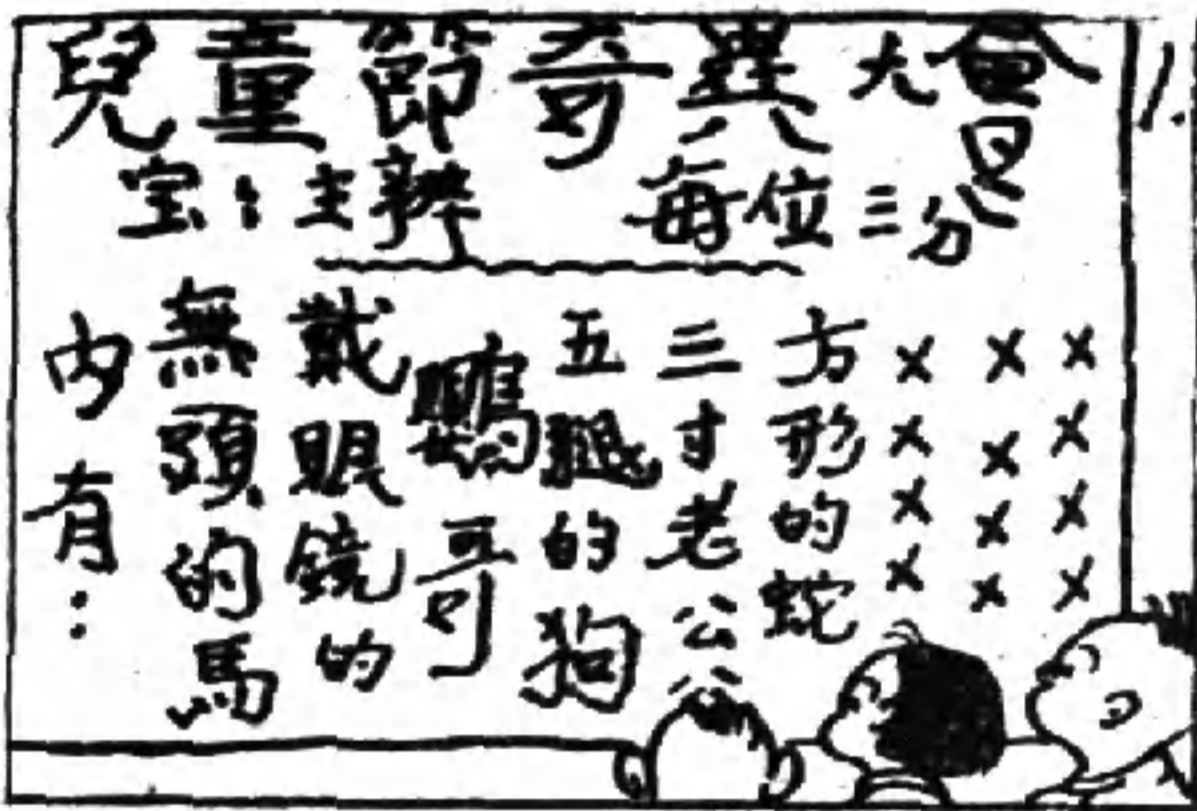 兒童節奇異大會
宝:主辦 每位三分
內有:
無頭的馬
戴眼鏡的
鸚哥
五腿的狗
三寸老公公
方形的蛇
××××
××××
××××
1.